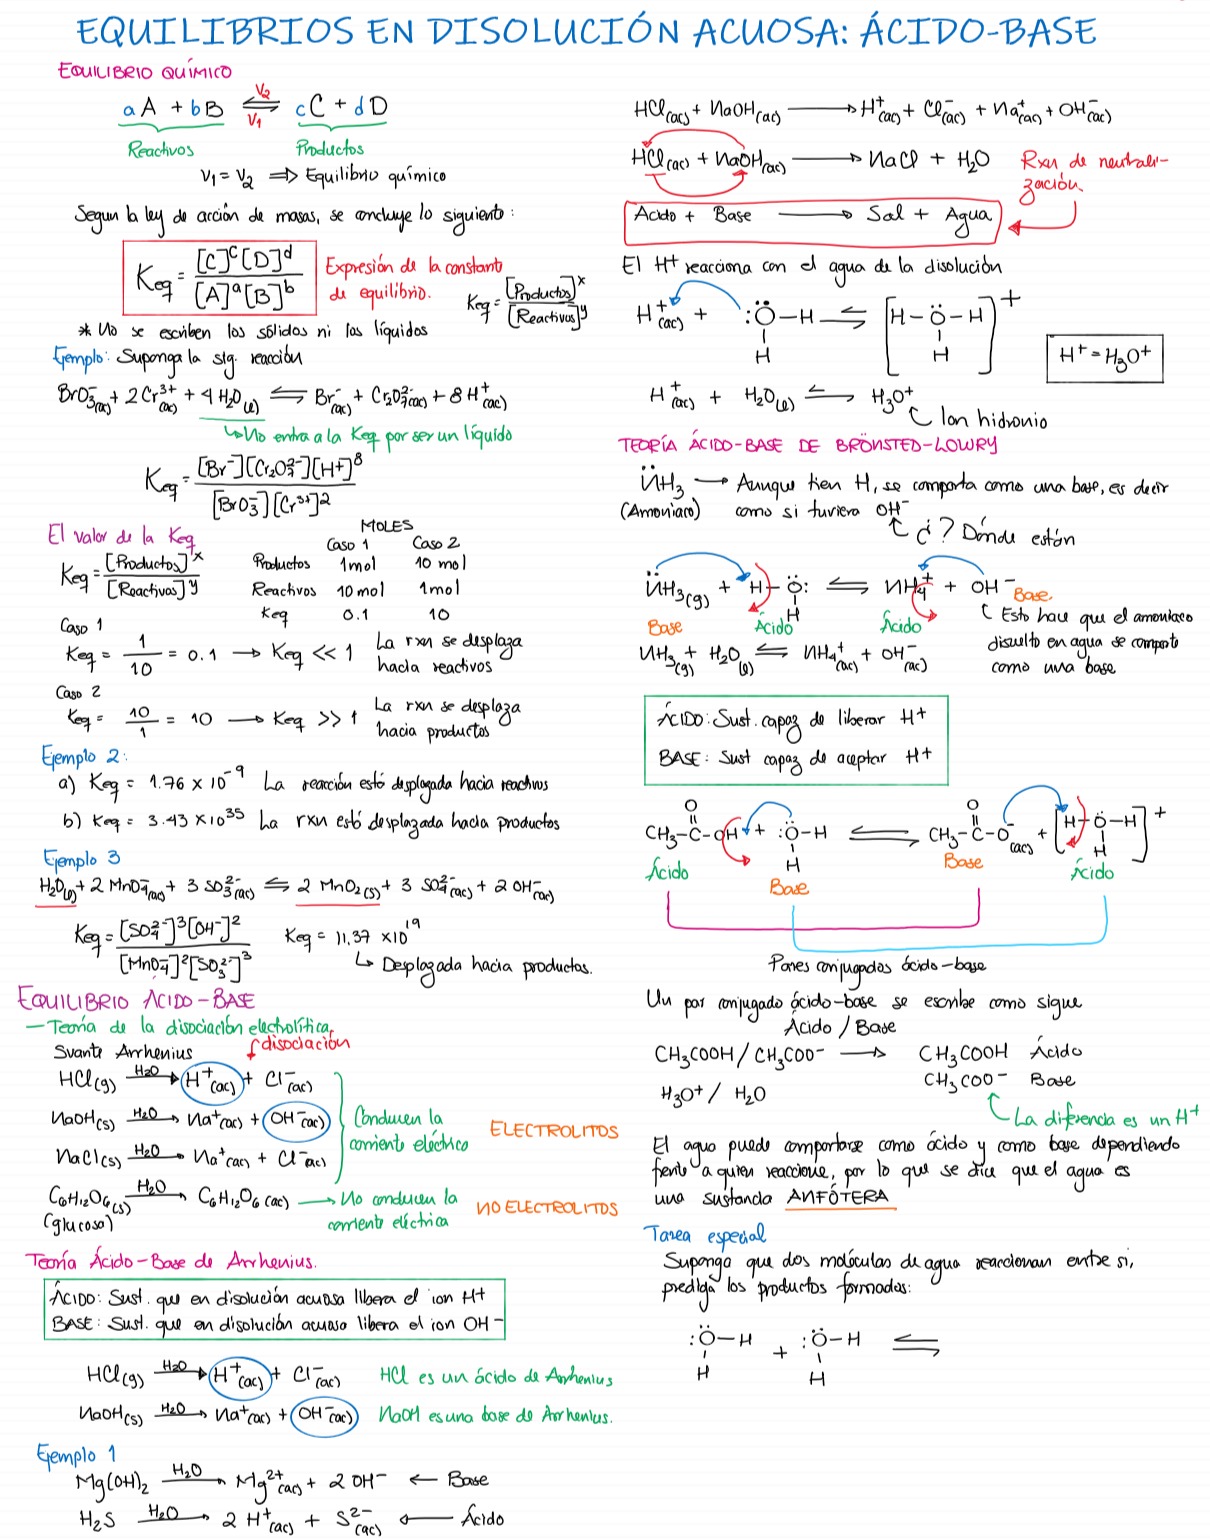 EQUILIBRIOS EN DISOLUCIÓN ACUOSA: ÁCIDO-BASE
EQUILIBRIO QUÍMICO
aA + bB ⇌ cC + dD
V₂
V₁
Reactivos Productos
V₁ = V₂ ⇒ Equilibrio químico
Segun la ley de acción de masas, se concluye lo siguiente:
Keq = [C]ᶜ[D]ᵈ / [A]ᵃ[B]ᵇ
Expresión de la constante de equilibrio.
Keq = [Productos]ˣ / [Reactivos]ʸ
* No se escriben los sólidos ni los líquidos
Ejemplo: Suponga la sig. reacción
BrO₃⁻(ac) + 2 Cr³⁺(ac) + 4 H₂O(l) ⇌ Br⁻(ac) + Cr₂O₇²⁻(ac) + 8 H⁺(ac)
↳ No entra a la Keq por ser un líquido
Keq = [Br⁻][Cr₂O₇²⁻][H⁺]⁸ / [BrO₃⁻][Cr³⁺]²
El valor de la Keq
Keq = [Productos]ˣ / [Reactivos]ʸ
MOLES
Caso 1 Caso 2
Productos 1mol 10 mol
Reactivos 10 mol 1mol
Keq 0.1 10
Caso 1
Keq = 1/10 = 0.1 → Keq << 1 La rxn se desplaza hacia reactivos
Caso 2
Keq = 10/1 = 10 → Keq >> 1 La rxn se desplaza hacia productos
Ejemplo 2:
a) Keq = 1.76 x 10⁻⁹ La reacción está desplazada hacia reactivos
b) Keq = 3.43 x 10³⁵ La rxn está desplazada hacia productos
Ejemplo 3
H₂O(l) + 2 MnO₄⁻(ac) + 3 SO₃²⁻(ac) ⇌ 2 MnO₂(s) + 3 SO₄²⁻(ac) + 2 OH⁻(ac)
Keq = [SO₄²⁻]³[OH⁻]² / [MnO₄⁻]²[SO₃²⁻]³
Keq = 11.37 x10¹⁹
↳ Desplazada hacia productos.
EQUILIBRIO ÁCIDO-BASE
– Teoría de la disociación electrolítica
Svante Arrhenius
disociación
HCl(g) —H₂O→ H⁺(ac) + Cl⁻(ac)
NaOH(s) —H₂O→ Na⁺(ac) + OH⁻(ac)
NaCl(s) —H₂O→ Na⁺(ac) + Cl⁻(ac)
Conducen la corriente eléctrica
ELECTROLITOS
C₆H₁₂O₆(s) —H₂O→ C₆H₁₂O₆(ac) → No conducen la corriente eléctrica
(glucosa)
NO ELECTROLITOS
Teoría Ácido-Base de Arrhenius.
ÁCIDO: Sust. que en disolución acuosa libera el ion H+
BASE: Sust. que en disolución acuosa libera el ion OH-
HCl(g) —H₂O→ H⁺(ac) + Cl⁻(ac) HCl es un ácido de Arrhenius
NaOH(s) —H₂O→ Na⁺(ac) + OH⁻(ac) NaOH es una base de Arrhenius.
Ejemplo 1
Mg(OH)₂ —H₂O→ Mg²⁺(ac) + 2 OH⁻ ← Base
H₂S —H₂O→ 2 H⁺(ac) + S²⁻(ac) ← Ácido
HCl(ac) + NaOH(ac) → H⁺(ac) + Cl⁻(ac) + Na⁺(ac) + OH⁻(ac)
HCl(ac) + NaOH(ac) → NaCl + H₂O
Rxn de neutralización.
Acido + Base → Sal + Agua
El H+ reacciona con el agua de la disolución
H⁺(ac) + :Ö–H ⇌ [H–Ö–H]⁺
H H
H⁺ = H₃O⁺
H⁺(ac) + H₂O(l) ⇌ H₃O⁺
Ion hidronio
TEORÍA ÁCIDO-BASE DE BRÖNSTED-LOWRY
N̈H₃ → Aunque tien H, se comporta como una base, es decir
(Amoniaco) como si tuviera OH⁻
¿? Dónde están
N̈H₃(g) + H–Ö: ⇌ NH₄⁺ + OH⁻
H
Base Ácido Ácido Base
Esto hace que el amoniaco disuelto en agua se comporte como una base
NH₃(g) + H₂O(l) ⇌ NH₄⁺(ac) + OH⁻(ac)
ÁCIDO: Sust. capaz de liberar H+
BASE: Sust capaz de aceptar H+
O O
CH₃–C–OH + :Ö–H ⇌ CH₃–C–O⁻(ac) + [H–Ö–H]⁺
H H
Ácido Base Base Ácido
Pares conjugados ácido-base
Un par conjugado ácido-base se escribe como sigue
Ácido / Base
CH₃COOH / CH₃COO⁻ → CH₃COOH Ácido
CH₃COO⁻ Base
H₃O⁺ / H₂O
La diferencia es un H+
El agua puede comportarse como ácido y como base dependiendo
frente a quien reaccione, por lo que se dice que el agua es
una sustancia ANFÓTERA
Tarea especial
Suponga que dos moléculas de agua reaccionan entre si,
prediga los productos formados:
:Ö–H + :Ö–H ⇌
H H